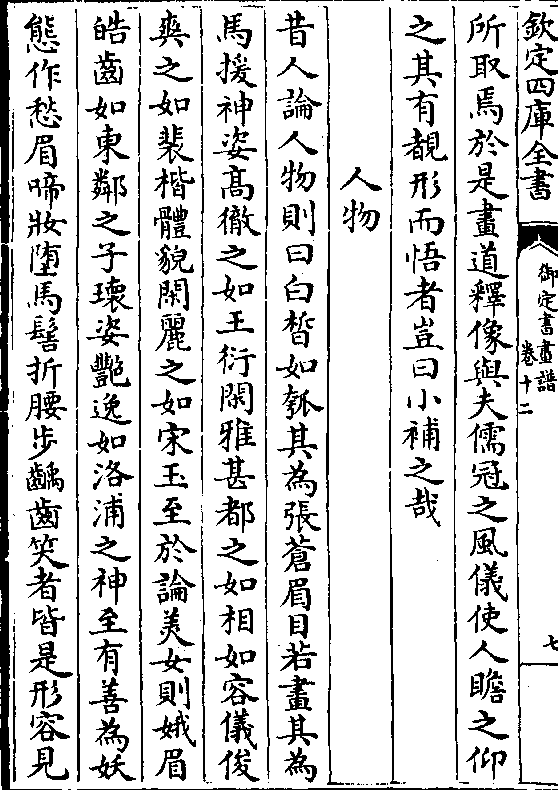 欽定四庫全書
御定書畫譜
卷十二
七
所取焉於是畫道釋像與夫儒冠之風儀使人瞻之仰
之其有覩形而悟者豈曰小補之哉
人物
昔人論人物則曰白皙如瓠其為張蒼眉目若畫其為
馬援神姿高徹之如王衍閑雅甚都之如相如容儀俊
爽之如裴楷體貌閑麗之如宋玉至於論美女則娥眉
皓齒如東鄰之子瓌姿艷逸如洛浦之神至有善為妖
態作愁眉啼妝墮馬髻折腰步齲齒笑者皆是形容見